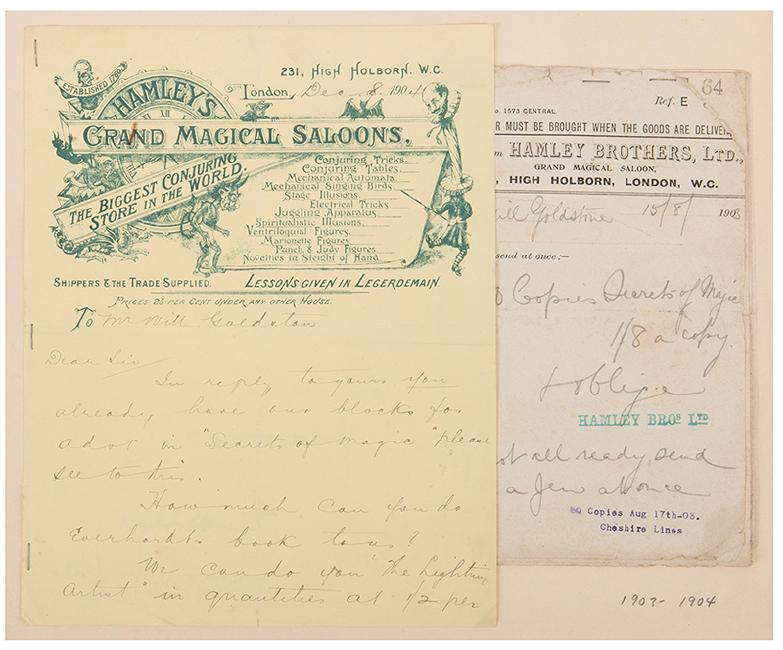 ESTABLISHED 1760
231, HIGH HOLBORN. W.C.
London, Dec. 8. 1904
HAMLEY'S
XII
GRAND MAGICAL SALOONS,
THE BIGGEST CONJURING
STORE IN THE WORLD.
Conjuring Tricks
Conjuring Tables
Mechanical Automata
Mechanical Singing Birds
Stage Illusions
Electrical Tricks
Juggling Apparatus
Spiritualistic Illusions
Ventriloquial Figures
Marionette Figures
Punch & Judy Figures
Novelties in Sleight of Hand
SHIPPERS & THE TRADE SUPPLIED.
LESSONS GIVEN IN LEGERDEMAIN.
PRICES 25 PER CENT UNDER ANY OTHER HOUSE.
To Mr Will Goldston
Dear Sir
In reply to yours you
already have our blocks for
advt in "Secrets of Magic" please
see to this.
How much can you do
Everhardts book to us?
We can do you "The Lightning
Artist" in quantities at 1/2 per
64
Ref. E
o. 1573 CENTRAL.
R MUST BE BROUGHT WHEN THE GOODS ARE DELIVE
m HAMLEY BROTHERS, LTD.,
GRAND MAGICAL SALOON,
, HIGH HOLBORN, LONDON, W.C.
Will Goldstone 15/8/ 1903
send at once:—
Copies Secrets of Magic
1/8 a copy.
& oblige
HAMLEY BROS LTD
not all ready, send
a few at once
Copies Aug 17th-03.
Cheshire Lines
1903 - 1904